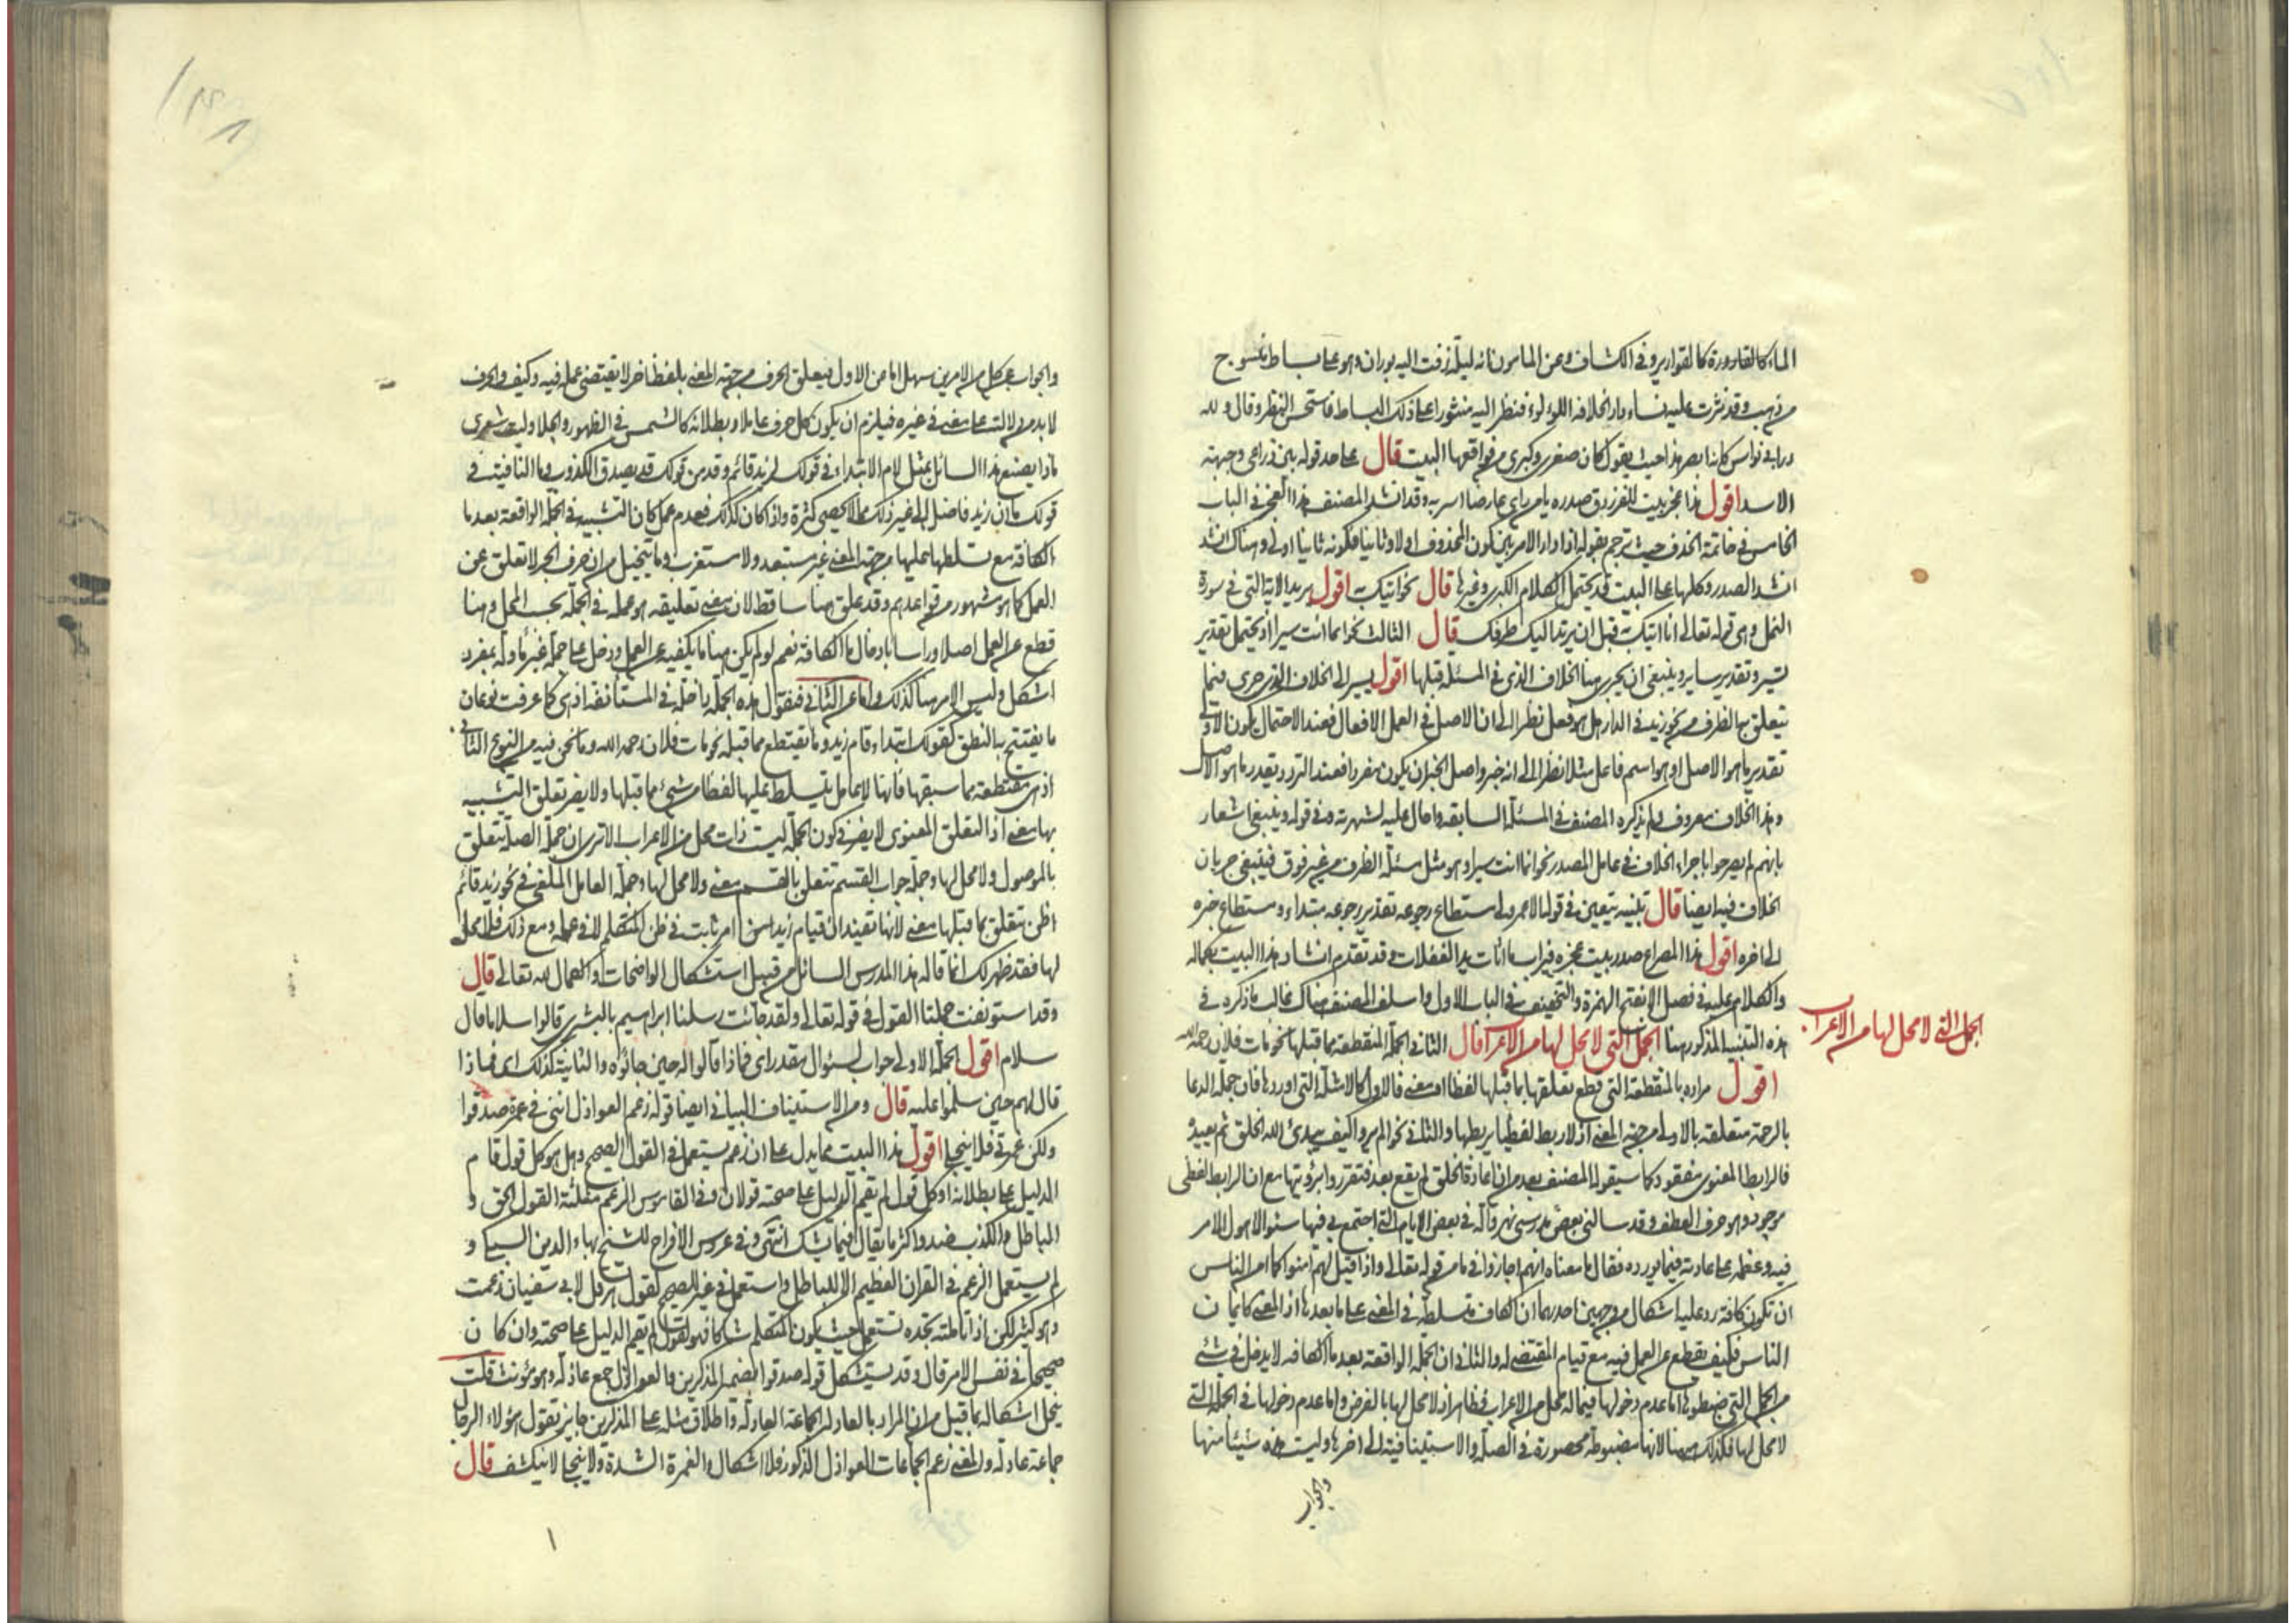 الماء كالقارورة كالقوارير وفي الكشاف وعن المامون انه ليلة زفت اليه بوران وهو على بساط منسوج
من ذهب وقد نثرت عليه نساء دار الخلافه اللؤلؤ فنظر اليه منثورا على ذلك البساط فاستحسن النظر وقال ولله
در ابي نواس كانه ابصر هذا حيث يقول كان صغرى وكبرى من فواقعها البيت قال على حد قوله بين ذراعي وجبهة
الاسد اقول هذا عجز بيت للفرزدق صدره يا من راى عارضا اسر به وقد انشد المصنف هذا العجز في الباب
الخامس في خاتمة الحذف حيث ترجم بقوله اذا دار الامر بين كون المحذوف اولا وثانيا فكونه ثانيا اولى وهناك انشد
انشد الصدر وكلها على البيت قد يحتمل الكلام الكبرى وغيرها قال نحو اتيك به اقول يريد الاية التي في سورة
النمل وهي قوله تعالى انا اتيك به قبل ان يرتد اليك طرفك قال الثالث نحو انما انت سيرا اذ يحتمل تقدير
تسير وتقدير ساير وينبغي ان يجري هنا الخلاف الذي في المسئلة قبلها اقول يسير الى الخلاف الذي جرى فيما
يتعلق بها الظرف من نحو زيد في الدار هل هو فعل نظر الى ان الاصل في العمل الافعال فعند الاحتمال يكون الاولى
تقدير ما هو الاصل او هو اسم فاعل مثلا نظر الى انه خبر واصل الخبر ان يكون مفردا فعند التردد يقدر ما هو الاصل
وهذا الخلاف معروف ولم يذكره المصنف في المسئلة السابقه واحال عليه لشهرته وفي قوله وينبغي اشعار
بانهم لم يصرحوا باجراء الخلاف في عامل المصدر نحو انما انت سيرا وهو مثل مسئلة الظرف من غير فرق فينبغي جريان
الخلاف فيه ايضا قال تنبيه يتعين في قوله الا عمر ولى مستطاع رجوعه تقدير رجوعه مبتداء ومستطاع خبره
الى اخره اقول هذا المصراع صدر بيت عجزه فيراب ما اثات يد الغفلات وقد تقدم انشاد هذا البيت بكماله
والكلام عليه في فصل الا بفتح الهمزة والتخفيف في الباب الاول واسلف المصنف هناك غالب ما ذكره في
هذه التنبيه المذكور هنا الجمل التي لا محل لها من الاعراب قال الثاني الجملة المنقطعة مما قبلها نحو مات فلان رحمه الله
الجمل التي لا محل لها من الاعراب
اقول مراده بالمنقطعة التي قطع تعلقها بما قبلها لفظا او معنى فالاول كالامثلة التي اوردها فان جملة الدعا
بالرحمة متعلقة بالاولى من جهة المعنى اذ لا ربط لفظيا يربطها والثاني نحو الم يروا كيف يبدئ الله الخلق ثم يعيده
فالرابط المعنوي مفقود كما سيقوله المصنف بعد من ان اعادة الخلق لم يقع بعد فتقرروا برؤيتها مع ان الرابط اللفظى
موجود وهو حرف العطف وقد سالني بعض مدرسي نهرواله في بعض الايام التي اجتمع بي فيها سئوالا هول الامر
فيه وعظمه على عادته فيما يورده فقال ما معناه انهم اجازوا في ما من قوله تعالى واذا قيل لهم امنوا كما امن الناس
ان تكون كافة ورد عليه اشكال من وجهين احدهما ان الكاف متسلطة في المعنى على ما بعدها اذ المعنى كايمان
الناس فكيف يقطع عن العمل فيه مع قيام المقتضى له والثاني ان الجملة الواقعة بعد ما الكافه لا يدخل في شئ
من الجمل التي ضبطوها اما عدم دخولها فيما له محل من الاعراب فظاهر اذ لا محل لها بالفرض واما عدم دخولها في الجمل التي
لا محل لها فكذلك هنا لانها مضبوطة محصورة في الصلة والاستينافية الى اخرها وليست هذه شيئا منها
والجواب
والجواب عن كل من الامرين سهل اما عن الاول فبتعلق الحرف من جهة المعنى بلفظ اخر لا يقتضي عمله فيه وكيف والحرف
لا بد من دلالته على معنى في غيره فيلزم ان يكون كل حرف عاملا وبطلانه كالشمس في الظهور والجلا وليت شعرى
ماذا يصنع هذا السائل بمثل لام الابتداء في قولك لزيد قائم وقد من قولك قد يصدق الكذوب وما النافية في
قولك ما ان زيد فاضل الى غير ذلك مما لا يحصى كثرة واذا كان كذلك فعدم عمل كان التشبيه في الجملة الواقعة بعد ما
الكافة مع تسلطها عليها من جهة المعنى غير مستبعد ولا مستغرب وما يتخيل من ان حرف الجر لا تعلق عن
العمل كما هو مشهور من قواعدهم وقد علق هنا ساقط لان معنى تعليقه هو عمله في الجملة بحسب المحل وهنا
قطع عن العمل اصلا وراسا بادخال ما الكافة نعم لو لم يكن هنا ما يكفيه عن العمل ودخل على جملة غير مأوله بمفرد
اشكل وليس الامر هنا كذلك واما عن الثاني فنقول هذه الجملة داخلة في المستانفه اذ هي كما عرفت نوعان
ما يفتتح بها النطق كقولك ابتداء قام زيد وما يقتطع مما قبله نحو مات فلان رحمه الله وما نحن فيه من النوع الثاني
اذ هي مقتطعة مما سبقها فانها لا عامل يتسلط عليها لفظا من شئ مما قبلها ولا يضر تعلق التشبيه
بها معنى اذ التعلق المعنوي لا يضر في كون الجملة ليست ذات محل من الاعراب الا ترى ان جملة الصلة تتعلق
بالموصول ولا محل لها وجملة جواب القسم تتعلق بالقسم معنى ولا محل لها وجملة العامل الملغى في نحو زيد قائم
اظن تتعلق بما قبلها معنى لانها تفيد ان قيام زيد امر ثابت في ظن المتكلم لا في علمه ومع ذلك فلا محل
لها فقد ظهر لك انما قاله هذا المدرس السائل من قبيل استشكال الواضحات والكمال لله تعالى قال
وقد استونفت جملتا القول في قوله تعالى ولقد جائت رسلنا ابراهيم بالبشرى قالوا سلاما قال
سلام اقول الجملة الاولى جواب لسئوال مقدر اى فماذا قالوا له حين جائوه والثانية كذلك اى فماذا
قال لهم حين سلموا عليه قال ومن الاستيناف البياني ايضا قوله زعم العواذل انني في غمرة صدقوا
ولكن غمرتي لا ينجلي اقول هذا البيت مما يدل على ان زعم يستعمل في القول الصحيح وهل هو كل قول قام
الدليل على بطلانه او كل قول لم يقم الدليل على صحته قولان وفي القاموس الزعم مثلثة القول الحق و
الباطل والكذب ضد واكثر ما يقال فيما يشك انتهى وفي عروس الافراح للشيخ بهاء الدين السبكى و
لم يستعمل الزعم في القران العظيم الا للباطل واستعمل في غيره الصحيح كقول هرقل لابي سفيان زعمت
وهو كثير لكن اذا تاملته تجده تستعمل حيث يكون المتكلم شاكا فهو لقول لم يقم الدليل على صحته وان كان
صحيحا في نفس الامر قال وقد يستشكل قوله صدقوا بضمير المذكرين والعواذل جمع عاذلة وهو مؤنث قلت
ينحل اشكاله بما قيل من ان المراد بالعاذلة الجماعة العاذلة واطلاق مثله على المذكرين جايز تقول هؤلاء الرجال
جماعة عاذلة والمعنى زعم الجماعات العواذل الذكور فلا اشكال والغمرة الشدة ولا ينجلي لا ينكشف قال